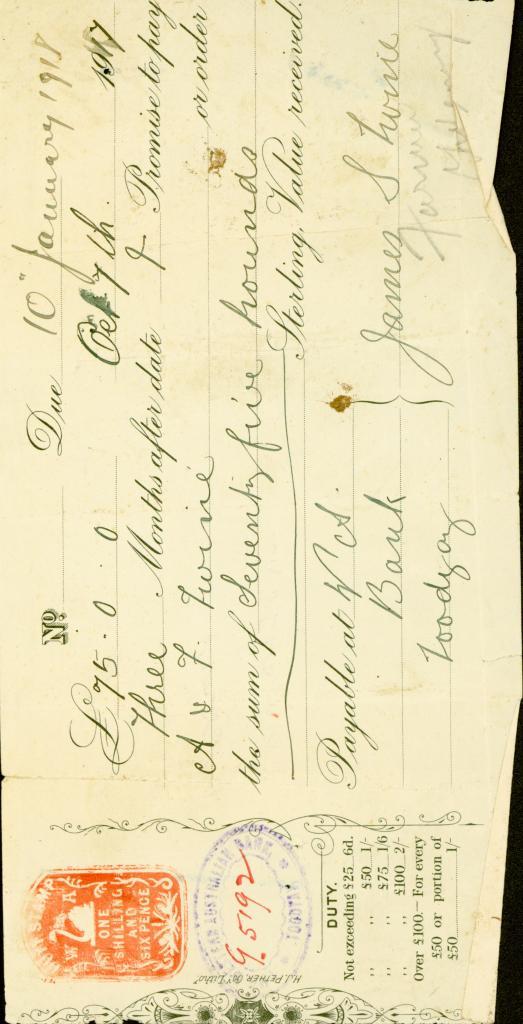 No. Due 10" January 1918
£75. 0. 0 Oct 7th. 1917
Three Months after date I Promise to pay
A & F. Twine or order
the sum of Seventyfive Pounds
Sterling. Value received.
Payable at W A.
Bank
Toodyay
James S Twine
Farmer
W A
ONE
SHILLING
AND
SIX PENCE
AUSTRALIAN BANK
TOODYAY
95192
H.J. PETHER Co Litho
DUTY.
Not exceeding £25 6d.
,, ,, £50 1/-
,, ,, £75 1/6
,, ,, £100 2/-
Over £100.—For every
£50 or portion of
£50 1/-